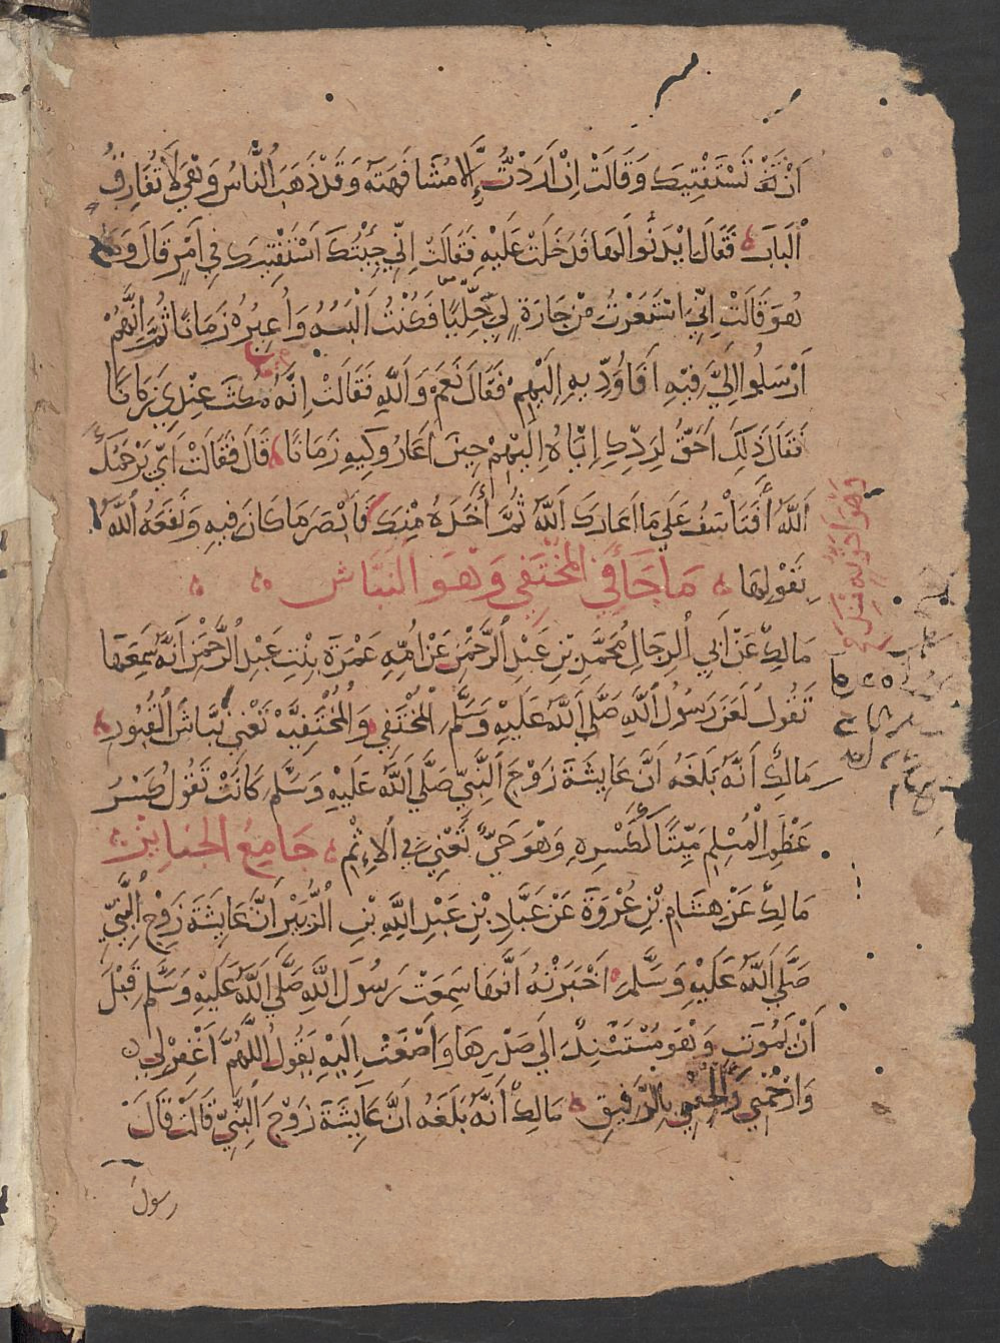 اَنْ تَسْتَفْتِيَكَ وَقَالَتْ اِنْ اَرَدْتُ اِلَّا مُشَافَهَتَهُ وَقَدْ ذَهَبَ النَّاسُ وَهْيَ لَا تُفَارِقُ
الْبَابَ فَقَالَ ايْذَنُوا لَهَا فَدَخَلَتْ عَلَيْهِ فَقَالَتْ اِنِّي جِيْتُكَ اَسْتَفْتِيكَ فِي اَمْرٍ قَالَ وَمَا
هُوَ قَالَتْ اِنِّي اسْتَعَرْتُ مِنْ جَارَةٍ لِي حَلْيًا فَكُنْتُ اَلْبَسُهُ وَاُعِيرُهُ زَمَانًا ثُمَّ اِنَّهُمْ
اَرْسَلُوا اِلَيَّ فِيهِ اَفَاُوَدِّيهِ اِلَيْهِمْ فَقَالَ نَعَمْ وَاللَّهِ فَقَالَتْ اِنَّهُ مَكَثَ عِنْدِي زَمَانًا
فَقَالَ ذَلِكَ اَحَقُّ لِرَدِّكِ اِيَّاهُ اِلَيْهِمْ حِينَ اَعَارُوكِيهِ زَمَانًا قَالَ فَقَالَتْ اَيْ يَرْحَمُكَ
اللَّهُ أَفَتَأْسَفُ عَلَى مَا اَعَارَكَ اللَّهُ ثُمَّ أَخَذَهُ مِنْكَ فَاَبْصَرَ مَا كَانَ فِيهِ وَنَفَعَهُ اللَّهُ
بِقَوْلِهَا مَا جَاءَ فِي الْمُخْتَفِي وَهُوَ النَّبَّاشُ
مَالِكٌ عَنْ اَبِي الرِّجَالِ مُحَمَّدِ بْنِ عَبْدِ الرَّحْمَنِ عَنْ اُمِّهِ عَمْرَةَ بِنْتِ عَبْدِ الرَّحْمَنِ اَنَّهُ سَمِعَهَا
تَقُولُ لَعَنَ رَسُولُ اللَّهِ صَلَّى اللَّهُ عَلَيْهِ وَسَلَّمَ الْمُخْتَفِي وَالْمُخْتَفِيَةَ تَعْنِي نَبَّاشَ الْقُبُورِ
مَالِكٌ اَنَّهُ بَلَغَهُ اَنَّ عَايِشَةَ زَوْجَ النَّبِيِّ صَلَّى اللَّهُ عَلَيْهِ وَسَلَّمَ كَانَتْ تَقُولُ كَسْرُ
عَظْمِ الْمُسْلِمِ مَيِّتًا كَكَسْرِهِ وَهْوَ حَيٌّ تَعْنِي فِي الْاِثْمِ جَامِعُ الْجَنَايِزِ
مَالِكٌ عَنْ هِشَامِ بْنِ عُرْوَةَ عَنْ عَبَّادِ بْنِ عَبْدِ اللَّهِ بْنِ الزُّبَيْرِ اَنَّ عَايِشَةَ زَوْجَ النَّبِيِّ
صَلَّى اللَّهُ عَلَيْهِ وَسَلَّمَ اَخْبَرَتْهُ اَنَّهَا سَمِعَتْ رَسُولَ اللَّهِ صَلَّى اللَّهُ عَلَيْهِ وَسَلَّمَ قَبْلَ
اَنْ يَمُوتَ وَهْوَ مُسْتَنِدٌ اِلَى صَدْرِهَا وَاَصْغَتْ اِلَيْهِ يَقُولُ اللَّهُمَّ اغْفِرْ لِي
وَارْحَمْنِي وَاَلْحِقْنِي بِالرَّفِيقِ مَالِكٌ اَنَّهُ بَلَغَهُ اَنَّ عَايِشَةَ زَوْجَ النَّبِيِّ قَالَتْ قَالَ
رسول